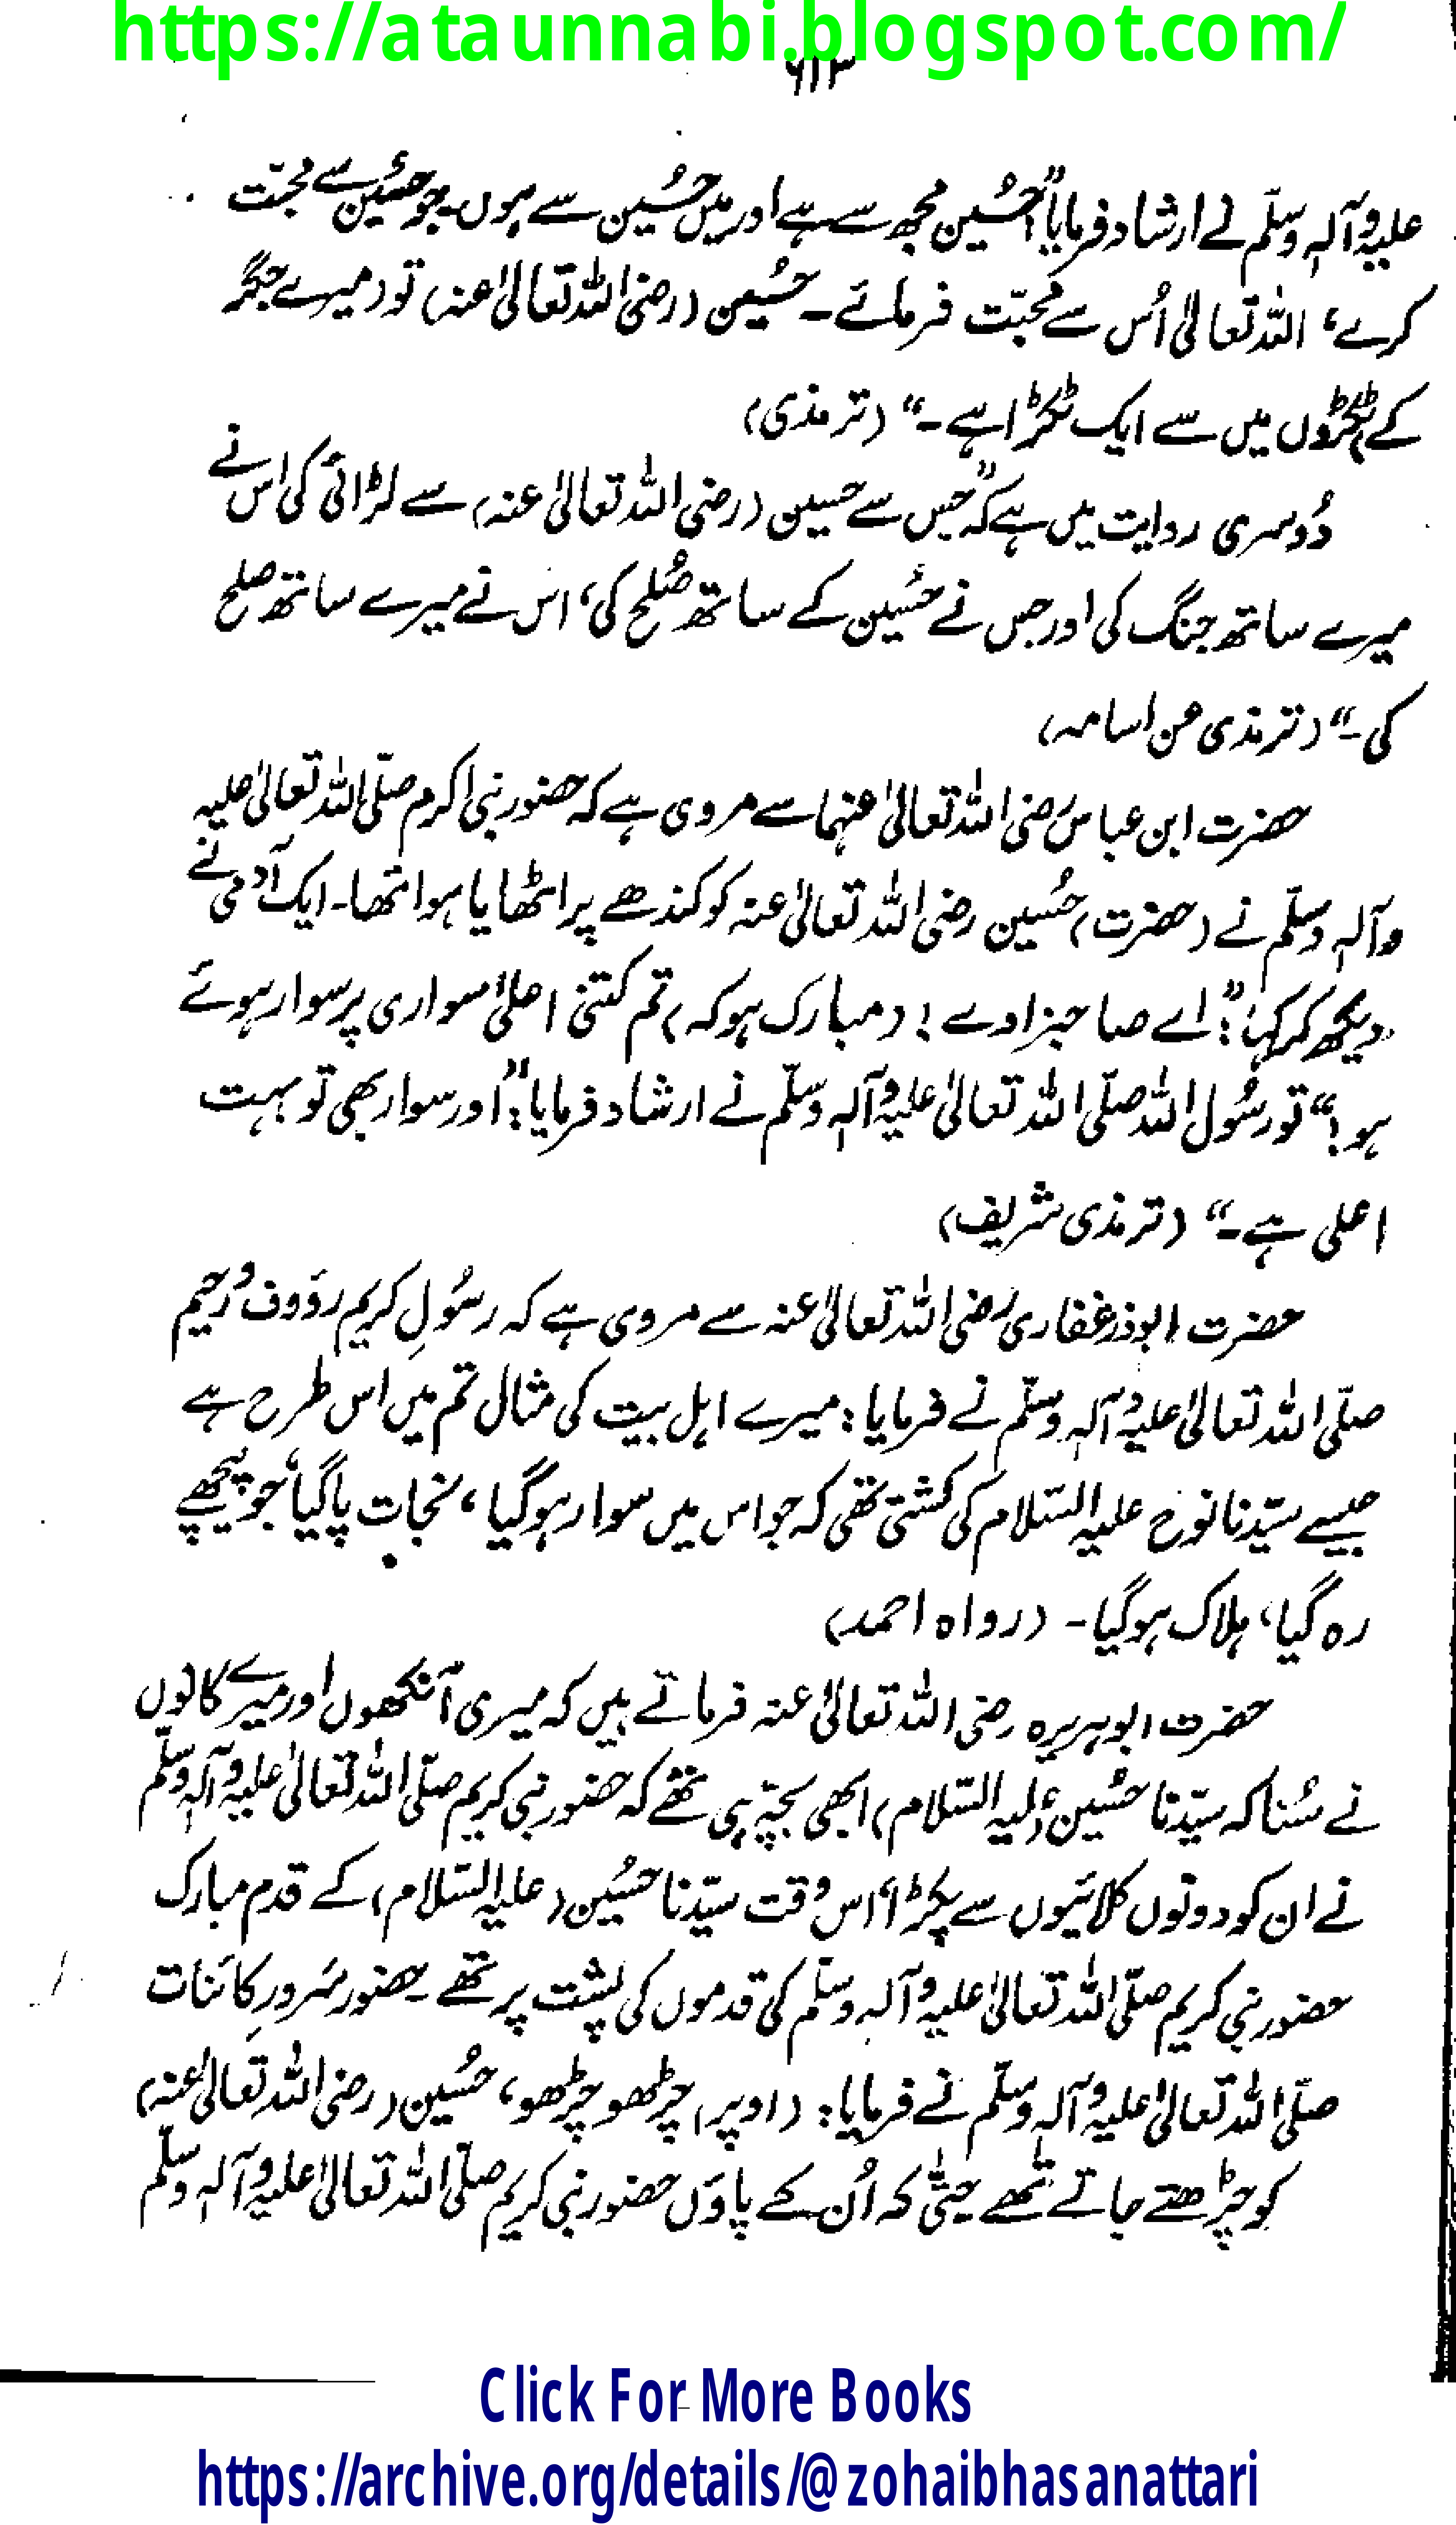 https://ataunnabi.blogspot.com/
۶۱۳
علیہ وآلہٖ وسلّم نے ارشاد فرمایا ”حُسین مجھ سے ہے اور میں حُسین سے ہوں۔ جو حسین سے محبّت
کرے، اللہ تعالیٰ اُس سے محبّت فرمائے۔ حسُین (رضی اللہ تعالیٰ عنہ) تو (میرے جگر
کے) ٹکڑوں میں سے ایک ٹکڑا ہے۔“ (ترمذی)
دُوسری روایت میں ہے کہ ”جس سے حسین (رضی اللہ تعالیٰ عنہ) سے لڑائی کی اس نے
میرے ساتھ جنگ کی اور جس نے حُسین کے ساتھ صُلح کی، اس نے میرے ساتھ صلح
کی۔“ (ترمذی عن اسامہ)
حضرت ابن عباس رضی اللہ تعالیٰ عنہما سے مروی ہے کہ حضور نبی اکرم صلّی اللہ تعالیٰ علیہ
وآلہٖ وسلّم نے (حضرت) حُسین رضی اللہ تعالیٰ عنہ کو کندھے پر اٹھایا ہوا تھا۔ ایک آدمی نے
دیکھ کر کہا: ”اے صاحبزادے! (مبارک ہو کہ) تم کتنی اعلیٰ سواری پر سوار ہوئے
ہو!“ تو رسُول اللہ صلّی اللہ تعالیٰ علیہ وآلہٖ وسلّم نے ارشاد فرمایا: ”اور سوار بھی تو بہت
اعلی ہے۔“ (ترمذی شریف)
حضرت ابوذر غفاری رضی اللہ تعالیٰ عنہ سے مروی ہے کہ رسُولِ کریم رؤوف و رحیم
صلّی اللہ تعالیٰ علیہ وآلہٖ وسلّم نے فرمایا: میرے اہل بیت کی مثال تم میں اس طرح ہے
جیسے سیّدنا نوح علیہ السّلام کی کشتی تھی کہ جو اس میں سوار ہو گیا، نجات پا گیا، جو پیچھے
رہ گیا، ہلاک ہو گیا۔ (رواہ احمد)
حضرت ابوہریرہ رضی اللہ تعالیٰ عنہ فرماتے ہیں کہ میری آنکھوں اور میرے کانوں
نے سُنا کہ سیّدنا حسُین (علیہ السّلام) ابھی بچّہ ہی تھے کہ حضور نبی کریم صلّی اللہ تعالیٰ علیہ وآلہٖ وسلّم
نے ان کو دونوں کلائیوں سے پکڑا، اس وقت سیّدنا حسُین (علیہ السّلام) کے قدم مبارک
حضور نبی کریم صلّی اللہ تعالیٰ علیہ وآلہٖ وسلّم کی قدموں کی پشت پر تھے۔ حضور سَرورِ کائنات
صلّی اللہ تعالیٰ علیہ وآلہٖ وسلّم نے فرمایا: (اوپر) چڑھو چڑھو، حسُین (رضی اللہ تعالیٰ عنہ)
کو چڑھتے جاتے تھے حتیٰ کہ اُن کے پاؤں حضور نبی کریم صلّی اللہ تعالیٰ علیہ وآلہٖ وسلّم
Click For More Books
https://archive.org/details/@zohaibhasanattari